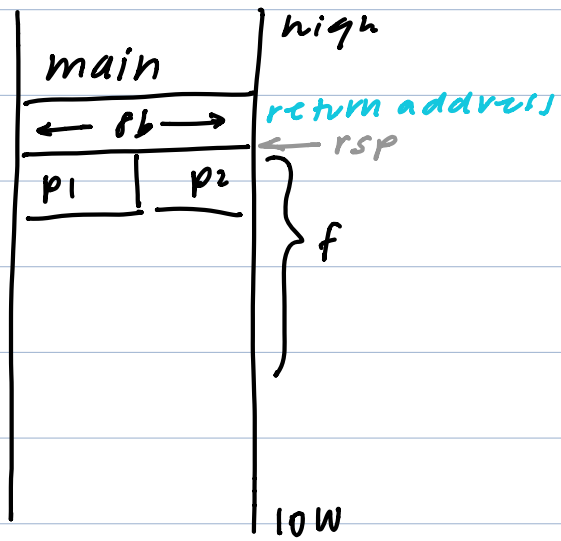 high
main
return address
← 8b →
← rsp
p1 p2
f
low